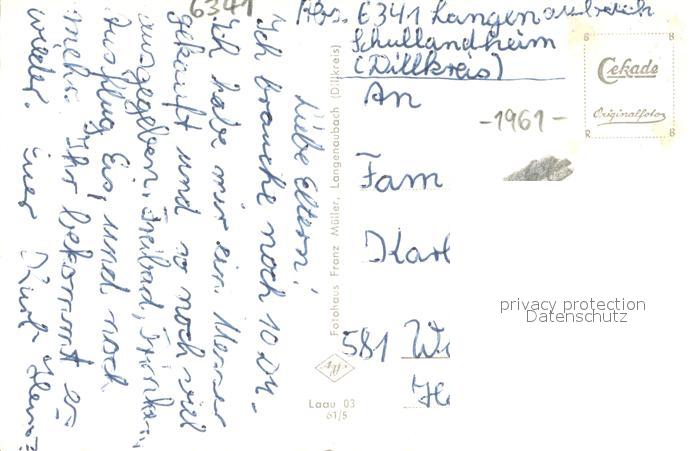 6341
Abs. 6341 Langenaubach
Schullandheim
(Dillkreis)
An
Fam
Karl
581 Wi
He
-1961-
Cekade
Originalfoto
R
R
Liebe Eltern!
Ich brauche noch 10 DM.
Ich habe mir ein Messer
gekauft und so noch viel
ausgegeben, Freibad, Trinken,
Ausflug, Eis, und noch
mehr. Ihr bekommt es
wieder. Euer
Fotohaus Franz Müller, Langenaubach (Dillkreis)
Agfa
Laau 03
61/5
privacy protection
Datenschutz